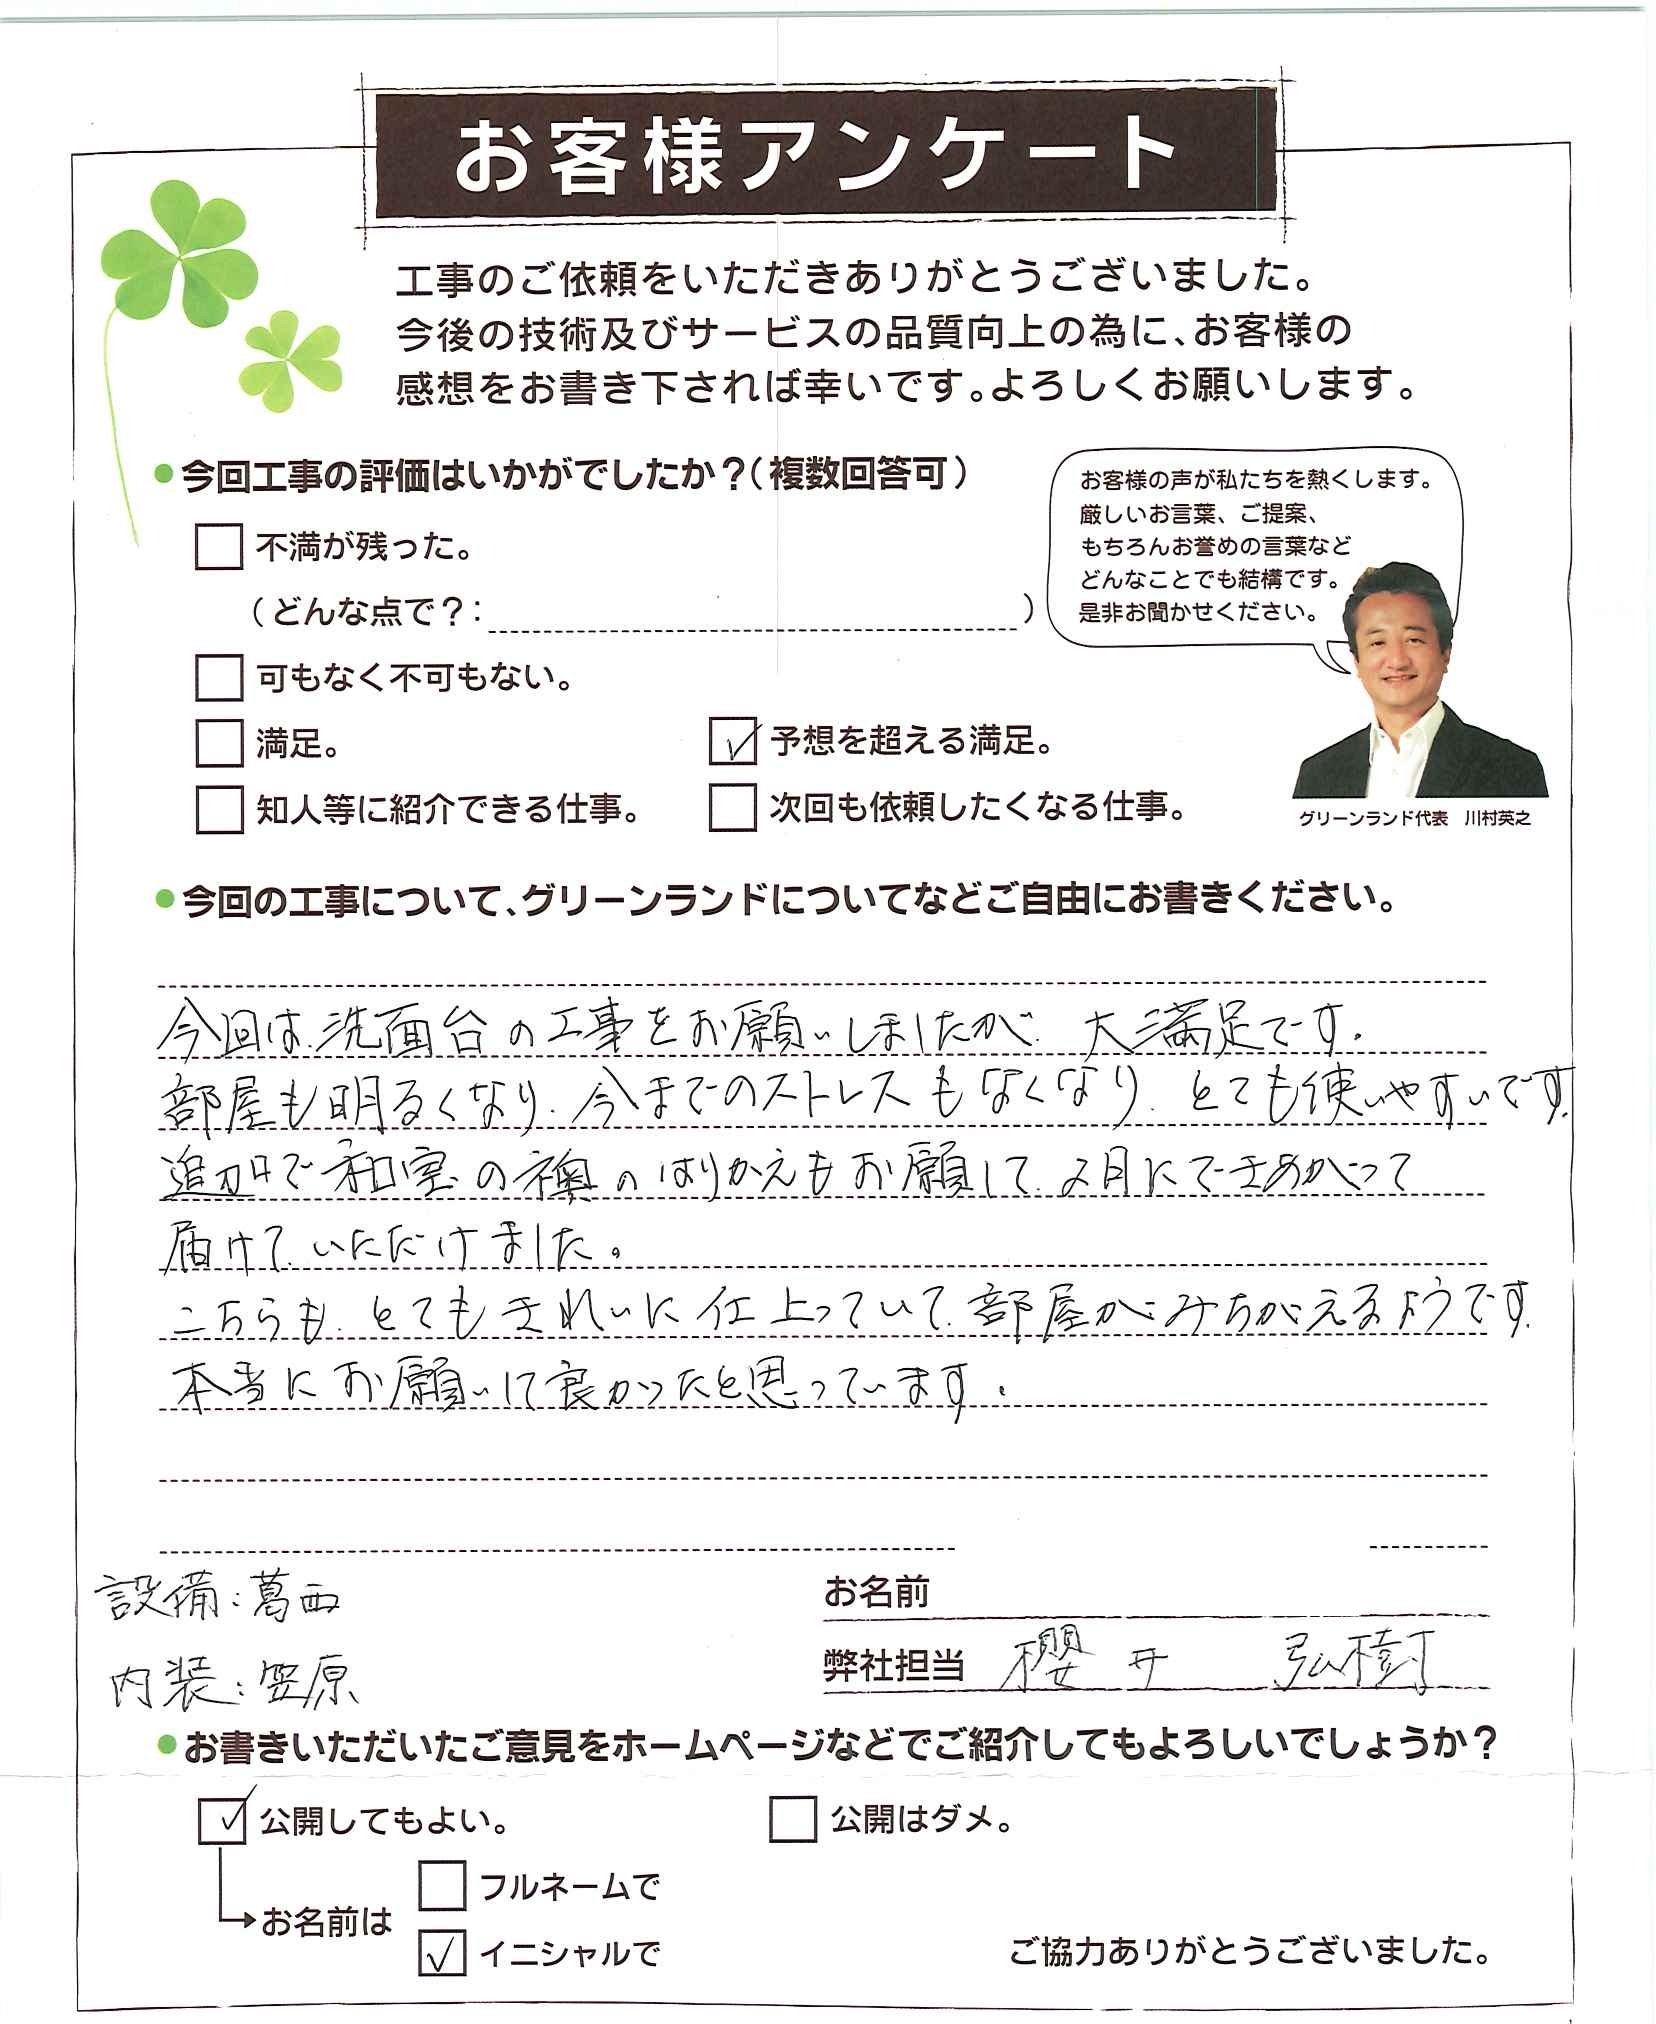 お客様アンケート
工事のご依頼をいただきありがとうございました。
今後の技術及びサービスの品質向上の為に、お客様の
感想をお書き下されば幸いです。よろしくお願いします。
●今回工事の評価はいかがでしたか?(複数回答可)
不満が残った。
(どんな点で?: )
可もなく不可もない。
満足。
予想を超える満足。
知人等に紹介できる仕事。
次回も依頼したくなる仕事。
お客様の声が私たちを熱くします。
厳しいお言葉、ご提案、
もちろんお誉めの言葉など
どんなことでも結構です。
是非お聞かせください。
グリーンランド代表 川村英之
●今回の工事について、グリーンランドについてなどご自由にお書きください。
今回は、洗面台の工事をお願いしましたが、大満足です。
部屋も明るくなり、今までのストレスもなくなり、とても使いやすいです。
追加で和室の襖のはりかえもお願して、2月にできあがって
届けていただけました。
こちらも、とてもきれいに仕上っていて、部屋がみちがえるようです。
本当にお願いして良かったと思っています。
設備:葛西
内装:笠原
お名前
弊社担当 櫻井 弘樹
●お書きいただいたご意見をホームページなどでご紹介してもよろしいでしょうか?
公開してもよい。
公開はダメ。
お名前は
フルネームで
イニシャルで
ご協力ありがとうございました。